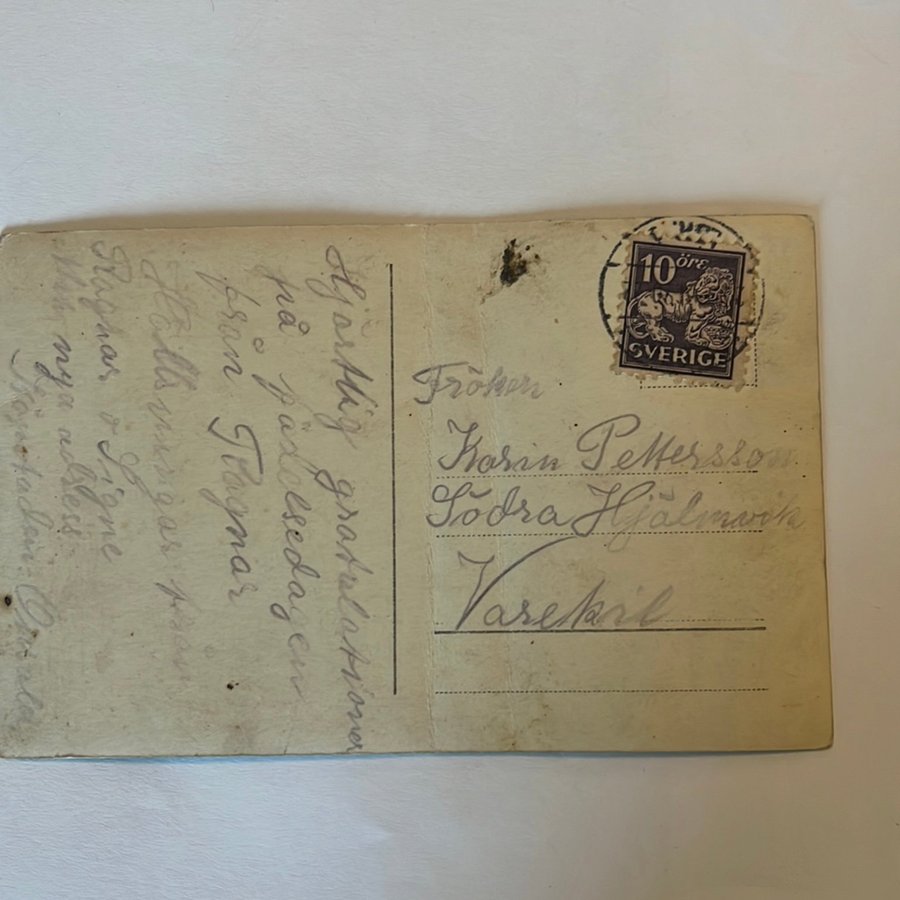 Hjärtlig gratulationer
på födelsedagen
från Ragnar
Hälsningar från
Ragnar o Signe
Min nya adress
10 ÖRE
SVERIGE
Fröken
Karin Pettersson
Södra Hjälmvik
Varekil